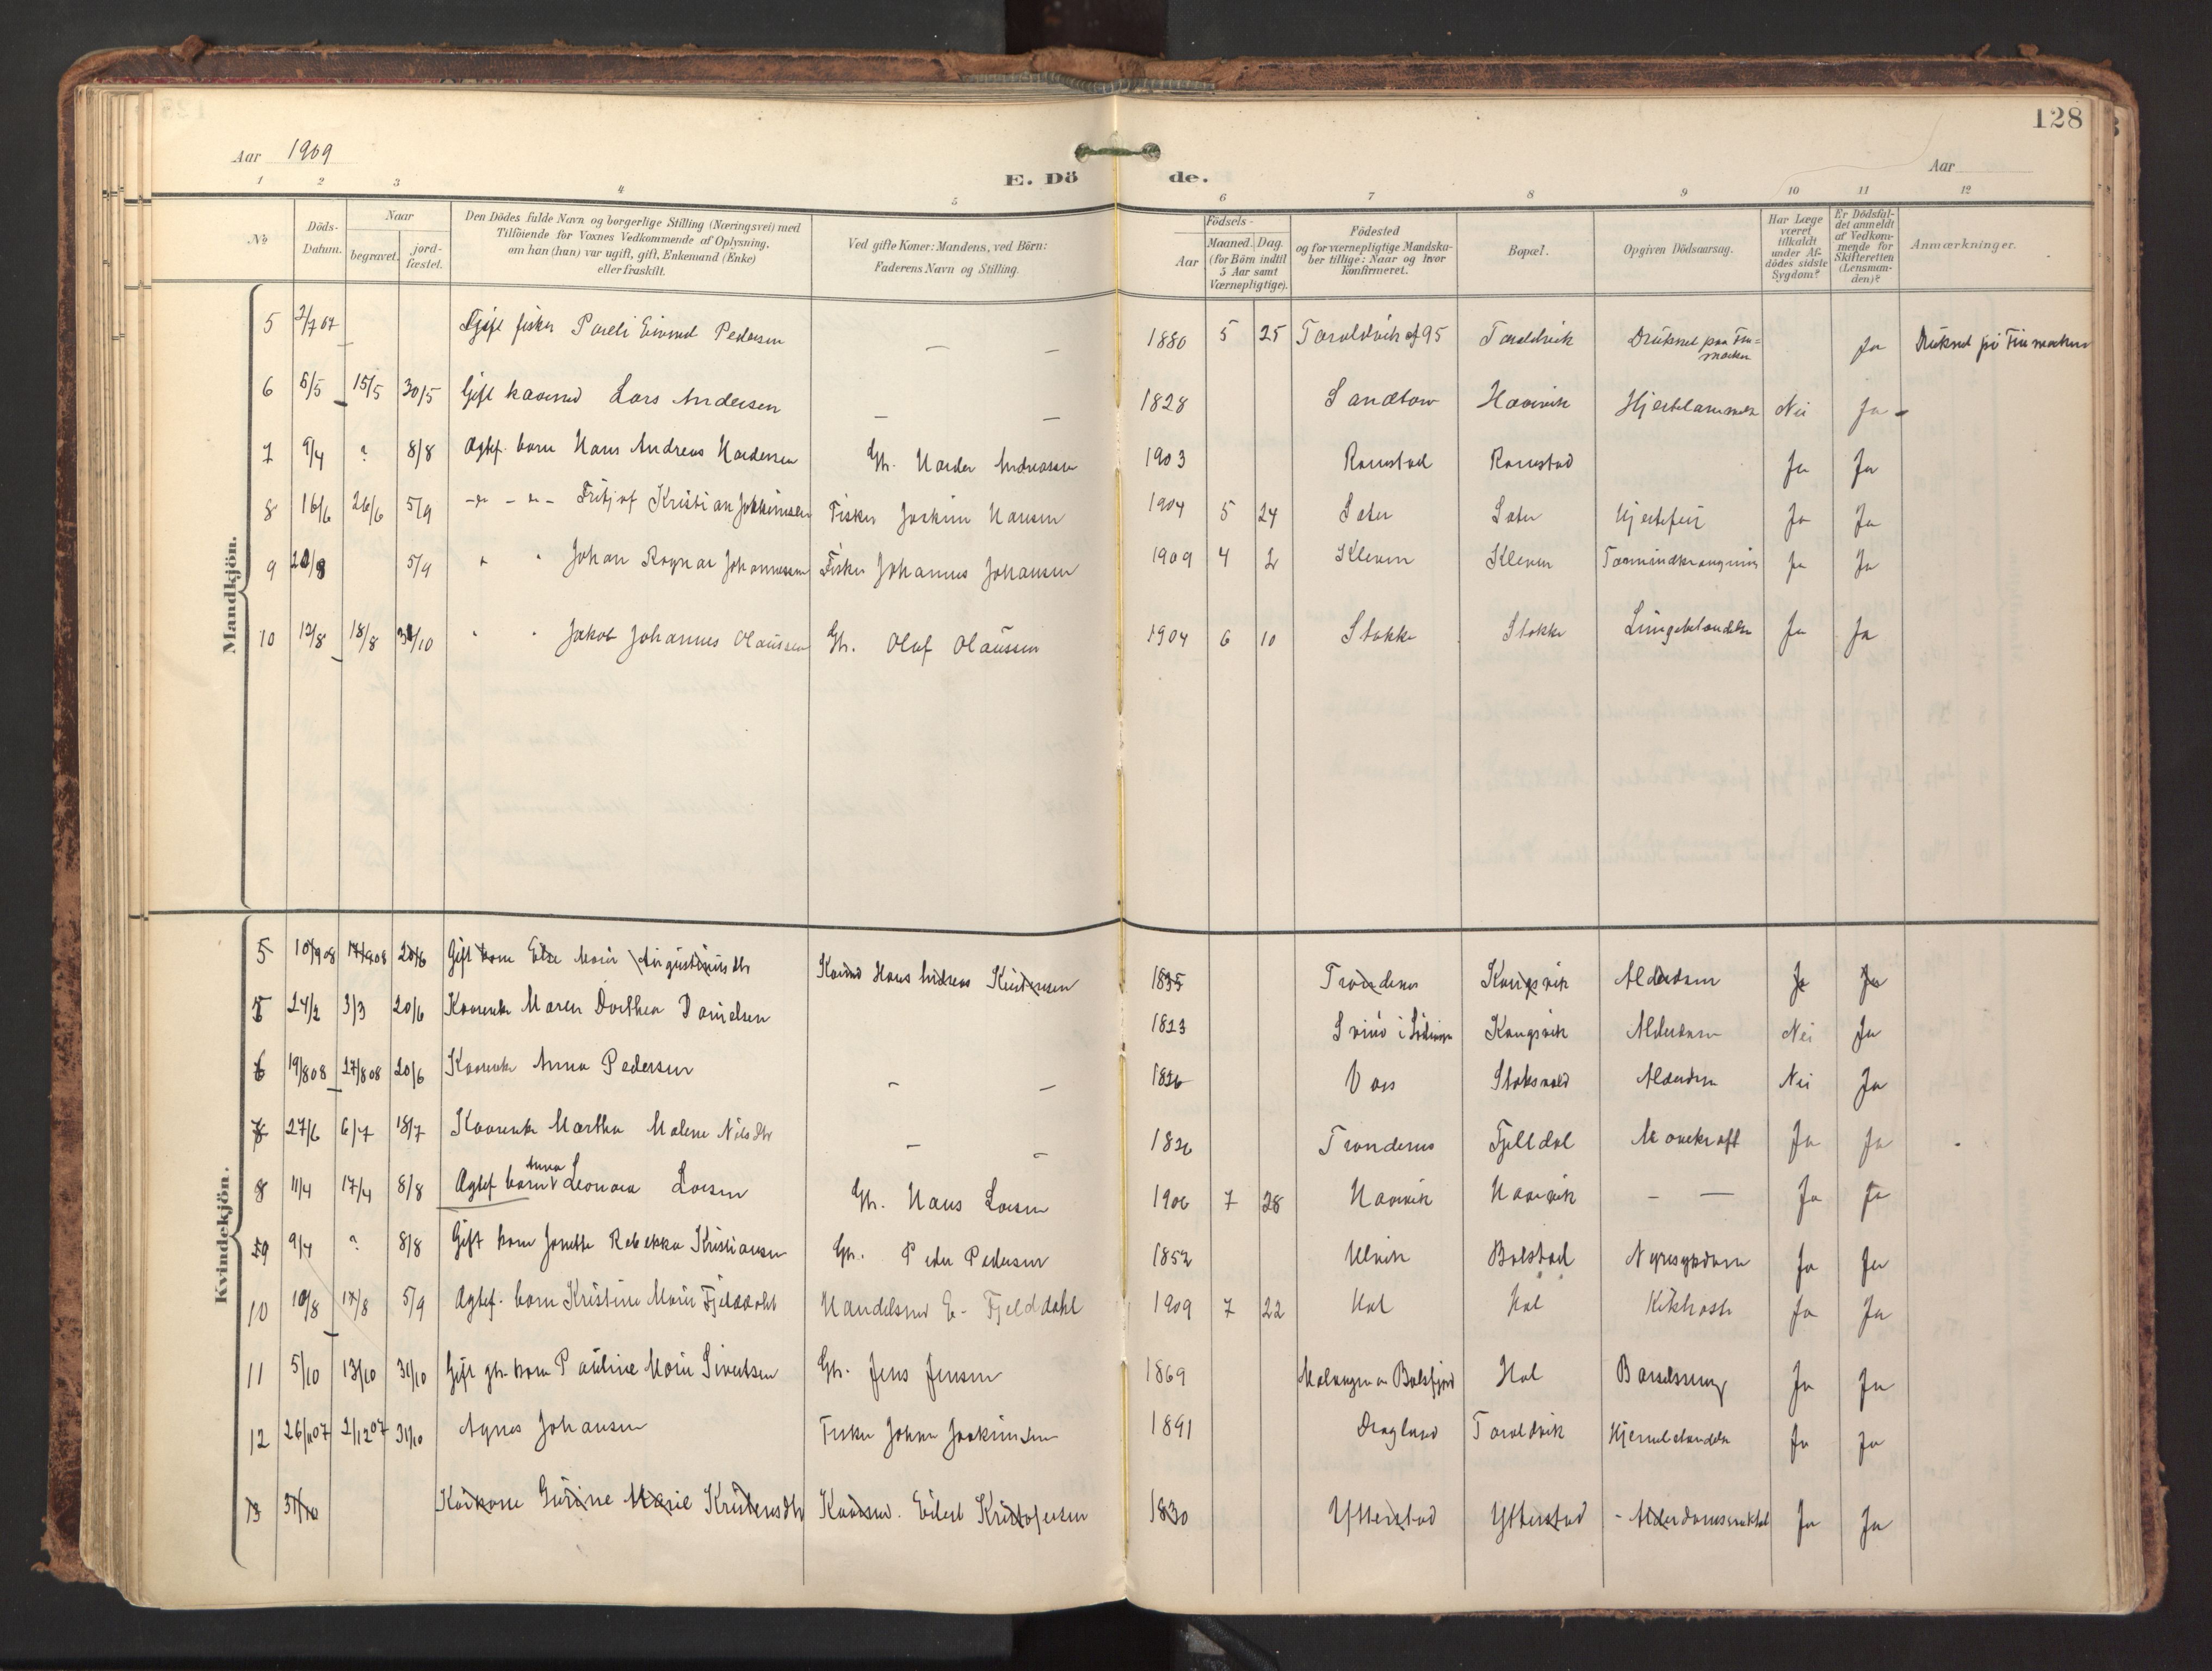 128
Aar 1909
Aar
E. Döde.
1 2 3 4 5 6 7 8 9 10 11 12
No
Döds-Datum.
Naar
begravet.
jord-fæstet.
Den Dödes fulde Navn og borgerlige Stilling (Næringsvei) med
Tilföiende for Voxnes Vedkommende af Oplysning,
om han (hun) var ugift, gift, Enkemand (Enke)
eller fraskilt.
Ved gifte Koner: Mandens, ved Börn:
Faderens Navn og Stilling.
Födsels-
Aar
Maaned. Dag.
(for Börn indtil
5 Aar samt
Værnepligtige).
Födested
og for værnepligtige Mandska-
ber tillige: Naar og hvor
konfirmeret.
Bopæl.
Opgiven Dödsaarsag.
Har Læge
været
tilkaldt
under Af-
dödes sidste
Sygdom?
Er Dödsfal-
det anmeldt
af Vedkom-
mende for
Skifteretten
(Lensman-
den)?
Anmærkninger.
Mandkjön.
5 2/7 07 fisker Pareli Eivind Pedersen — — 1880 5 25 Taraldvik 95 Taraldvik Druknet paa Fin-
marken Ja Druknet på Finmarken
6 6/5 15/5 30/5 Gift kaarmd Lars Andersen — — 1828 Sandtorv Haavik Hjertelammelse Nei Ja
7 9/4 ? 8/8 Ægtef. barn Hans Andreas Hardersen Gbr. Harder Andreassen 1903 Ramstad Ramstad Ja Ja
8 16/6 26/6 5/9 -do- -do- Fritjof Kristian Joakimsen Fisker Joakim Hansen 1904 5 24 Sæter Sæter Hjertefeil Ja Ja
9 20/8 5/9 " " Johan Ragnar Johannessen Fisker Johannes Johansen 1909 4 2 Kleven Kleven Ja Ja
10 12/8 18/8 31/10 " " Jakob Johannes Olaussen Gbr. Olaf Olaussen 1904 6 10 Stokke Stokke Lungebetændelse Ja Ja
Kvindekjön.
5 10/9 08 17/9 08 20/6 Gift kone Else Marie Augustinusdtr Kaarmd Hans Andreas Kristensen 1835 Trondenes Kongsvik Alderdom Ja Ja
5 24/2 3/3 20/6 Kaarenke Maren Dorthea Danielsen 1823 Svinø i Lødingen Kongsvik Alderdom Nei Ja
6 19/8 08 27/8 08 20/6 Kaarenke Anna Pedersen — — 1826 Vaas Alderdom Nei Ja
7 27/6 6/7 18/7 Kaarenke Martha Malene Nilsdtr — — 1826 Trondenes Fjelldal Mavekræft Ja Ja
8 11/4 17/4 8/8 Ægtef barn Anna Leonora Larsen Gbr. Hans Larsen 1906 7 28 Haavik Haavik — — Ja Ja
9 9/4 ? 8/8 Gift kone Jonette Rebekka Kristiansen Gbr. Peder Pedersen 1852 Ulvik Balstad Nyresygdom Ja Ja
10 10/8 17/8 5/9 Ægtef. barn Kristine Marie Fjelddahl Handelsmd E. Fjelddahl 1909 7 22 Hol Hol Kikhoste Ja Ja
11 5/10 13/10 31/10 Gift gbr. kone Pauline Marie Sivertsen Gbr. Jens Jensen 1869 Malangen Balsfjord Hol Barselseng Ja Ja
12 26/11 07 2/12 07 31/10 Agnes Johansen Fisker Johan Joakimsen 1891 Dragland Taraldvik Hjernebetændelse Ja Ja
13 31/10 Kaarkone Gurine Marie Kristensdtr Kaarmd. Eilert Kristofersen 1830 Ytterstad Ytterstad Ja Ja